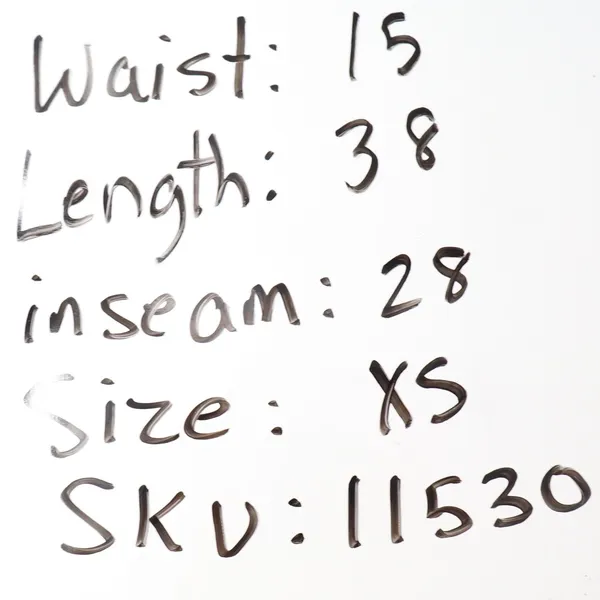 Waist: 15
Length: 38
inseam: 28
Size: XS
SKU: 11530